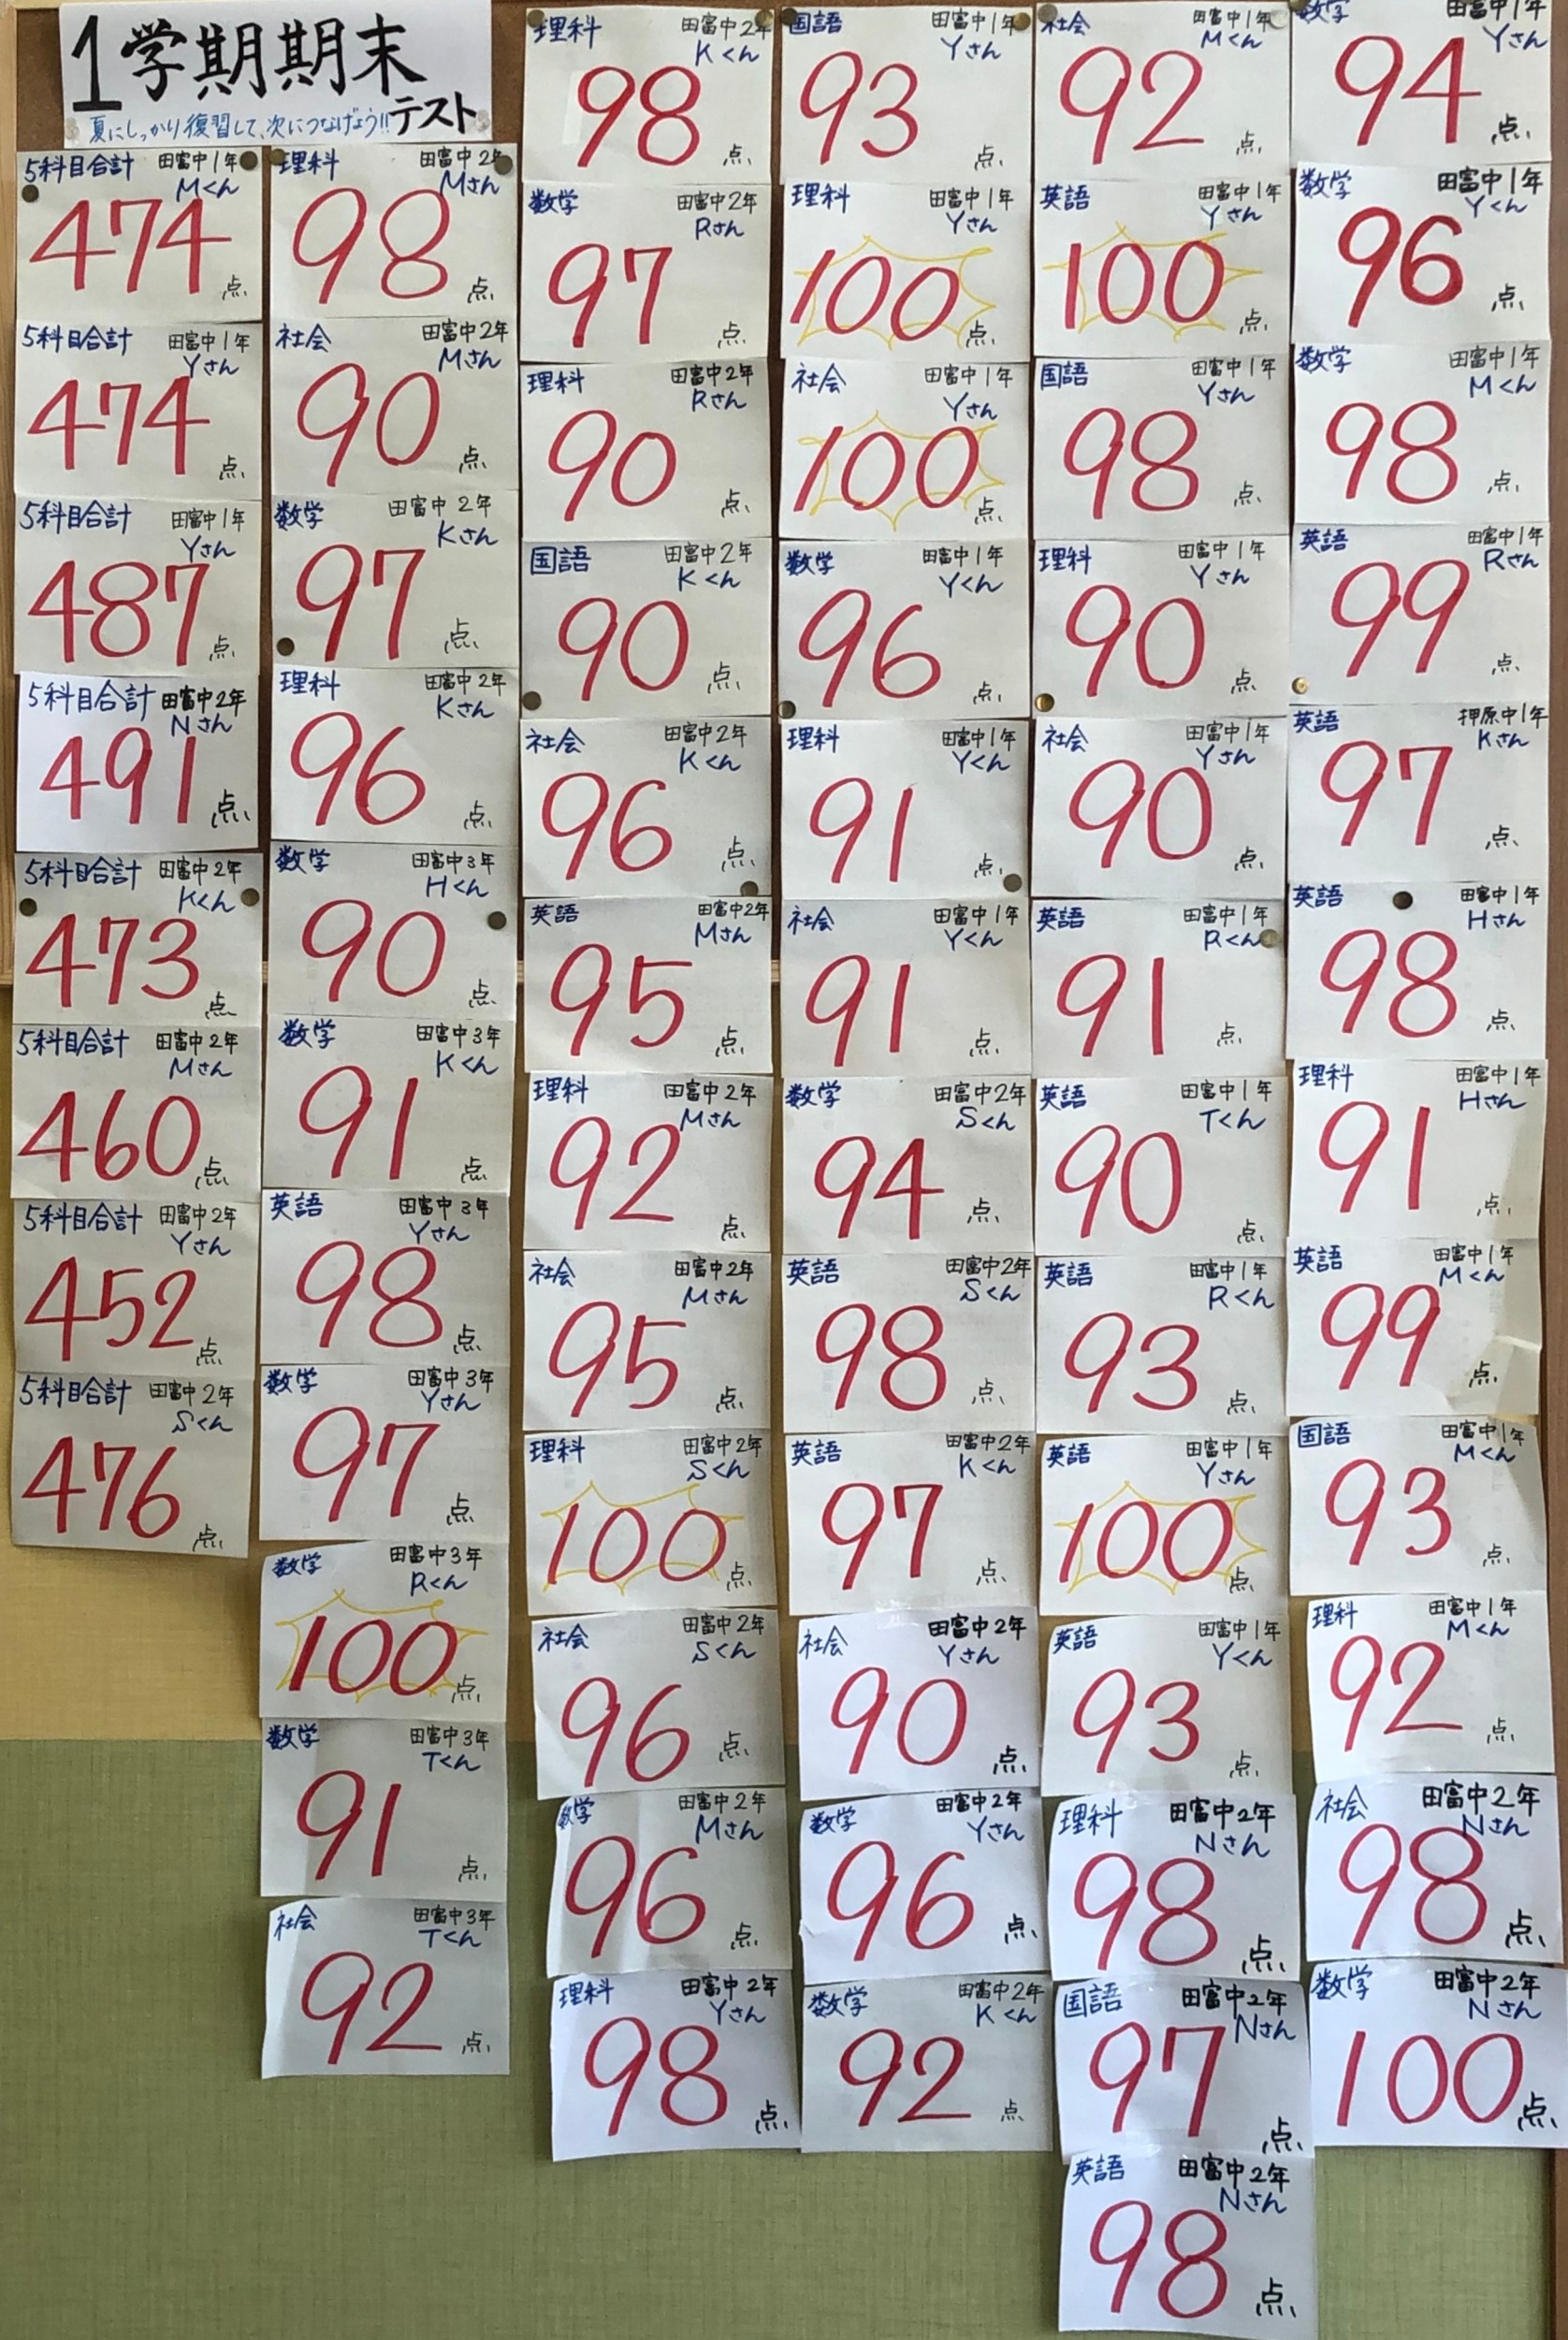 1学期期末
テスト
夏にしっかり復習して、次につなげよう!!
5科目合計 田富中1年
Mくん
474点
5科目合計 田富中1年
Yさん
474点
5科目合計 田富中1年
Yさん
487点
5科目合計 田富中2年
Nさん
491点
5科目合計 田富中2年
Kくん
473点
5科目合計 田富中2年
Mさん
460点
5科目合計 田富中2年
Yさん
452点
5科目合計 田富中2年
Sくん
476点
理科 田富中2年
Mさん
98点
社会 田富中2年
Mさん
90点
数学 田富中2年
Kさん
97点
理科 田富中2年
Kさん
96点
数学 田富中3年
Hくん
90点
数学 田富中3年
Kくん
91点
英語 田富中3年
Yさん
98点
数学 田富中3年
Yさん
97点
数学 田富中3年
Rくん
100点
数学 田富中3年
Tくん
91点
社会 田富中3年
Tくん
92点
理科 田富中2年
Kくん
98点
数学 田富中2年
Rさん
97点
理科 田富中2年
Rさん
90点
国語 田富中2年
Kくん
90点
社会 田富中2年
Kくん
96点
英語 田富中2年
Mさん
95点
理科 田富中2年
Mさん
92点
社会 田富中2年
Mさん
95点
理科 田富中2年
Sくん
100点
社会 田富中2年
Sくん
96点
数学 田富中2年
Mさん
96点
理科 田富中2年
Yさん
98点
国語 田富中1年
Yさん
93点
理科 田富中1年
Yさん
100点
社会 田富中1年
Yさん
100点
数学 田富中1年
Yくん
96点
理科 田富中1年
Yくん
91点
社会 田富中1年
Yくん
91点
数学 田富中2年
Sくん
94点
英語 田富中2年
Sくん
98点
英語 田富中2年
Kくん
97点
社会 田富中2年
Yさん
90点
数学 田富中2年
Yさん
96点
数学 田富中2年
Kくん
92点
社会 田富中1年
Mくん
92点
英語 田富中1年
Yさん
100点
国語 田富中1年
Yさん
98点
理科 田富中1年
Yさん
90点
社会 田富中1年
Yさん
90点
英語 田富中1年
Rくん
91点
英語 田富中1年
Tくん
90点
英語 田富中1年
Rくん
93点
英語 田富中1年
Yさん
100点
英語 田富中1年
Yくん
93点
理科 田富中2年
Nさん
98点
国語 田富中2年
Nさん
97点
英語 田富中2年
Nさん
98点
数学 田富中1年
Yさん
94点
数学 田富中1年
Yくん
96点
数学 田富中1年
Mくん
98点
英語 田富中1年
Rさん
99点
英語 押原中1年
Kさん
97点
英語 田富中1年
Hさん
98点
理科 田富中1年
Hさん
91点
英語 田富中1年
Mくん
99点
国語 田富中1年
Mくん
93点
理科 田富中1年
Mくん
92点
社会 田富中2年
Nさん
98点
数学 田富中2年
Nさん
100点